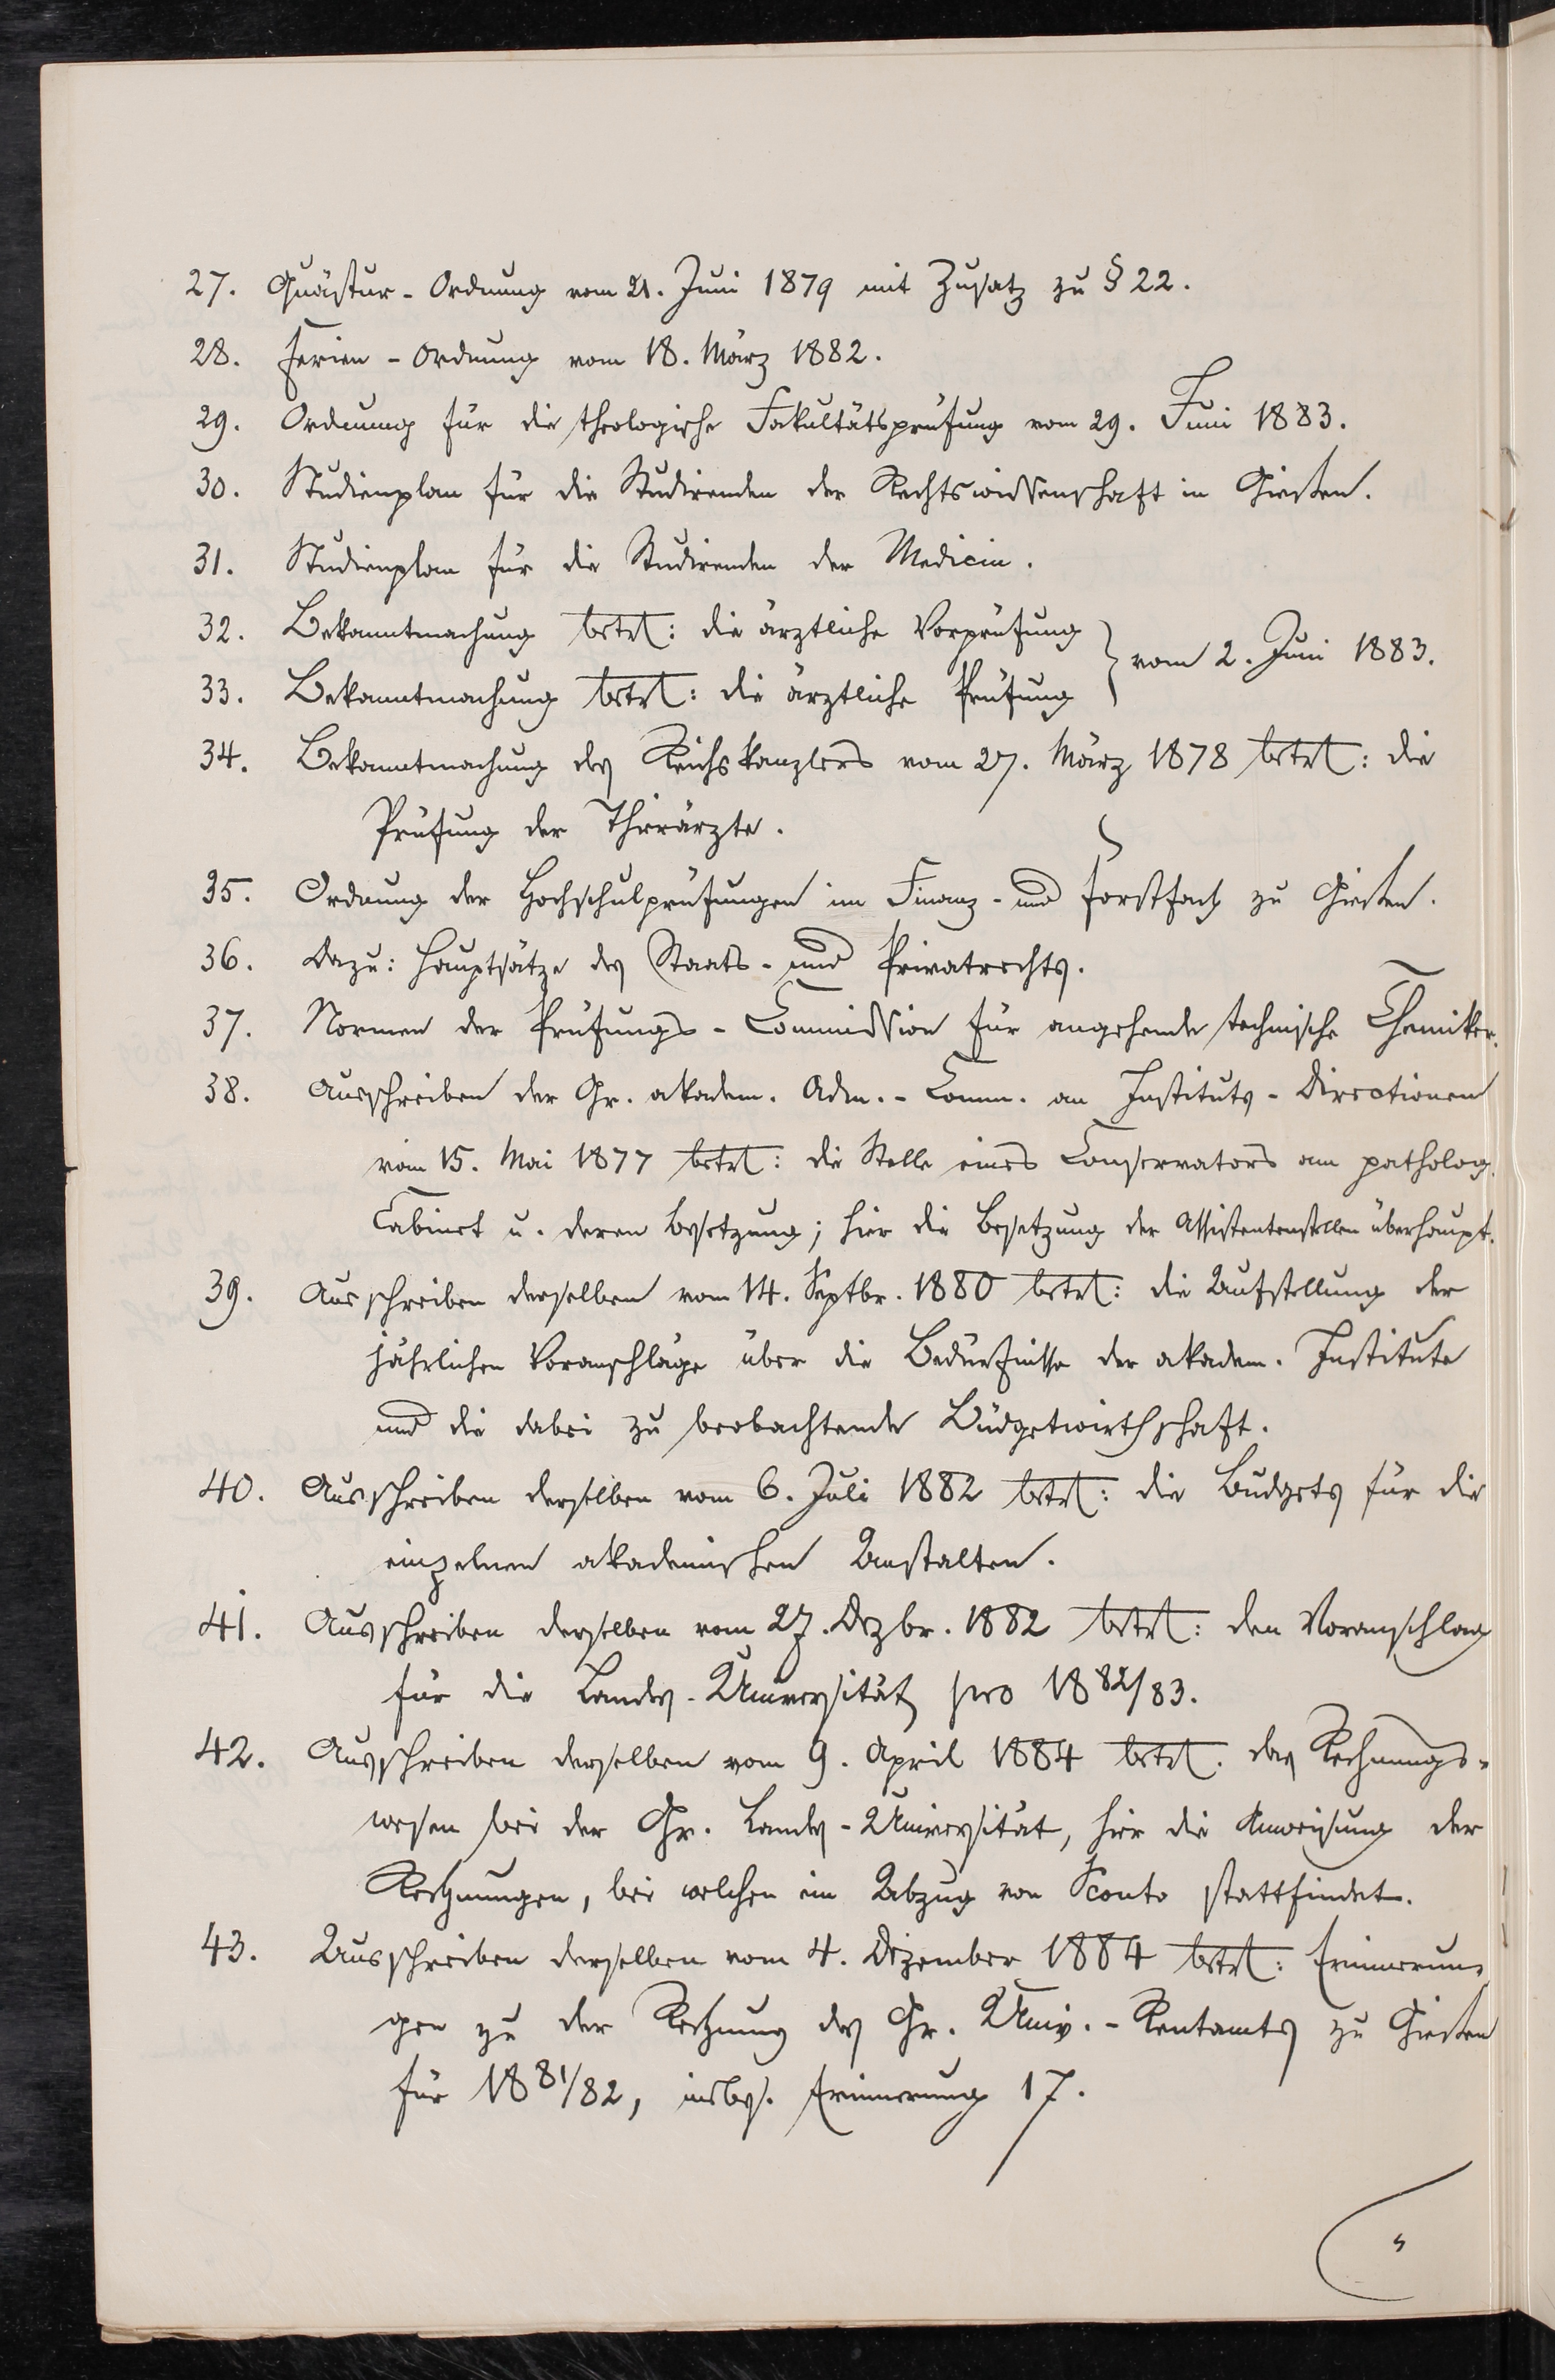 27. Quästur-Ordnung vom 21. Juni 1879 mit Zusatz zu § 22.
28. Ferien-Ordnung vom 18. März 1882.
29. Ordnung für die theologische Fakultätsprüfung vom 29. Juni 1883.
30. Studienplan für die Studirenden der Rechtswissenschaft in Gießen.
31. Studienplan für die Studirenden der Medicin.
32. Bekanntmachung betr: die ärztliche Vorprüfung
} vom 2. Juni 1883.
33. Bekanntmachung betr: die ärztliche Prüfung
34. Bekanntmachung des Reichskanzlers vom 27. März 1878 betr: die
Prüfung der Thierärzte.
35. Ordnung der Hochschulprüfungen im Finanz- und Forstfach zu Gießen.
36. Dazu: Hauptsätze des Staats- und Privatrechts.
37. Normen der Prüfungs-Commission für angehende technische Chemiker.
38. Ausschreiben der Gr. akadem. Adm.-Comm. an Instituts-Directionen
vom 15. Mai 1877 betr: die Stelle eines Conservators am patholog.
Cabinet u. deren Besetzung; hier die Besetzung der Assistentenstellen überhaupt.
39. Ausschreiben derselben vom 14. Septbr. 1880 betr: die Aufstellung der
jährlichen Voranschläge über die Bedürfnisse der akadem. Institute
und die dabei zu beobachtende Büdgetwirthschaft.
40. Ausschreiben derselben vom 6. Juli 1882 betr: die Budgets für die
einzelnen akademischen Anstalten.
41. Ausschreiben derselben vom 27. Dezbr. 1882 betr: den Voranschlag
für die Landes-Universität pro 1882/83.
42. Ausschreiben derselben vom 9. April 1884 betr. das Rechnungs-
wesen bei der Gr. Landes-Universität, hier die Anweisung der
Rechnungen, bei welchen ein Abzug von Sconto stattfindet.
43. Ausschreiben derselben vom 4. Dezember 1884 betr: Erinnerun-
gen zu der Rechnung des Gr. Univ.-Rentamts zu Gießen
für 1881/82, insbes. Erinnerung 17.